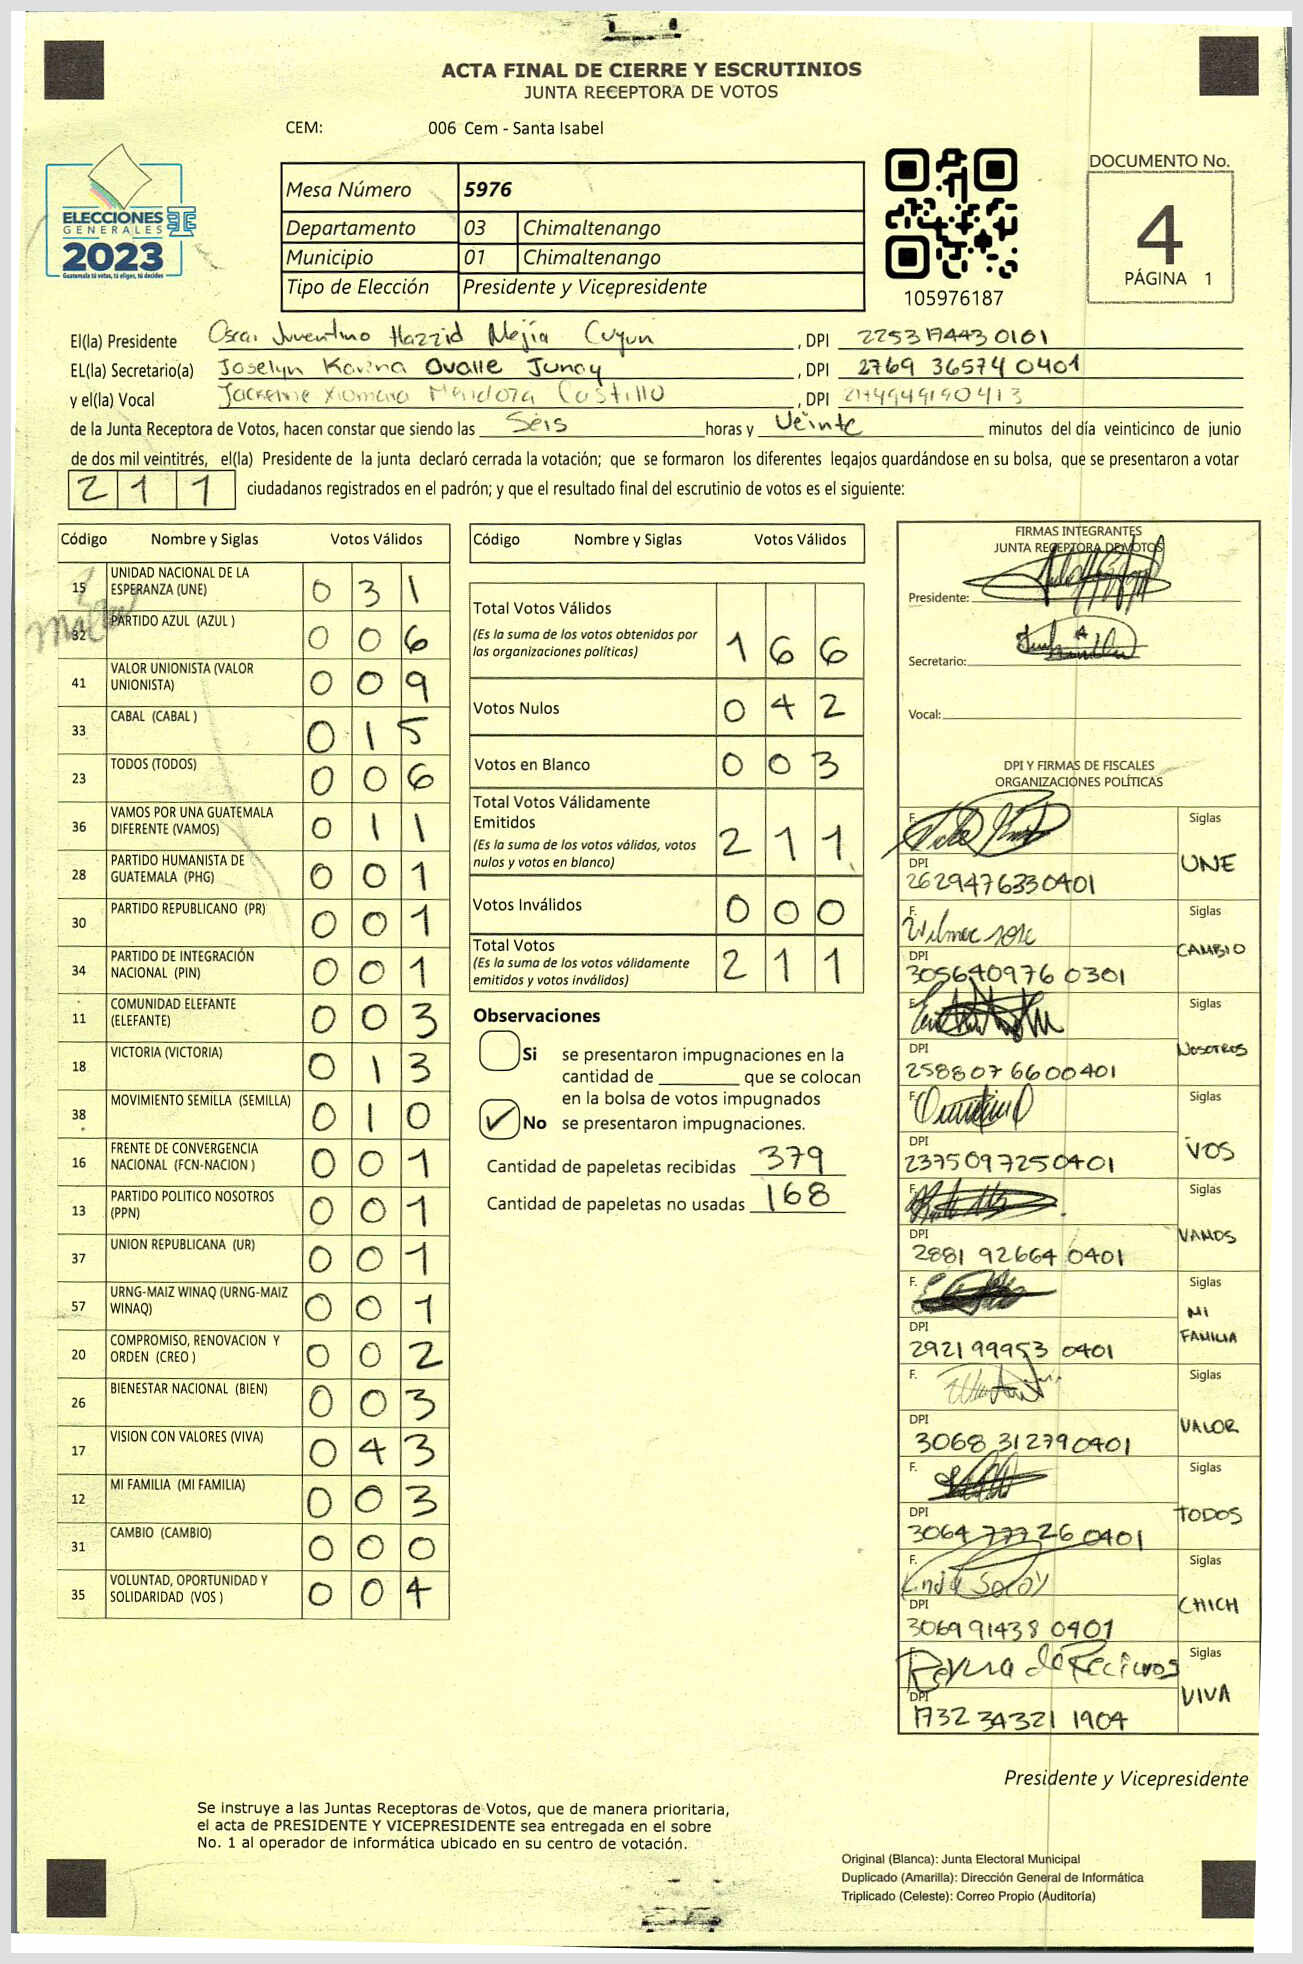 ACTA FINAL DE CIERRE Y ESCRUTINIOS
JUNTA RECEPTORA DE VOTOS
CEM: 006 Cem - Santa Isabel
ELECCIONES
GENERALES
2023
Guatemala tú votas, tú eliges, tú decides
Mesa Número 5976
Departamento 03 Chimaltenango
Municipio 01 Chimaltenango
Tipo de Elección Presidente y Vicepresidente
105976187
DOCUMENTO No.
4
PÁGINA 1
El(la) Presidente Oscar Juventino Hazzid Mejía Cuyun, DPI 2253174430101
EL(la) Secretario(a) Joselyn Karina Ovalle Junay, DPI 2769 36574 0401
y el(la) Vocal Xiomara Mendoza Castillo, DPI 2174949190413
de la Junta Receptora de Votos, hacen constar que siendo las Seis horas y Veinte minutos del día veinticinco de junio
de dos mil veintitrés, el(la) Presidente de la junta declaró cerrada la votación; que se formaron los diferentes legajos guardándose en su bolsa, que se presentaron a votar
211 ciudadanos registrados en el padrón; y que el resultado final del escrutinio de votos es el siguiente:
Código Nombre y Siglas Votos Válidos
15 UNIDAD NACIONAL DE LA ESPERANZA (UNE) 0 3 1
32 PARTIDO AZUL (AZUL ) 0 0 6
41 VALOR UNIONISTA (VALOR UNIONISTA) 0 0 9
33 CABAL (CABAL ) 0 1 5
23 TODOS (TODOS) 0 0 6
36 VAMOS POR UNA GUATEMALA DIFERENTE (VAMOS) 0 1 1
28 PARTIDO HUMANISTA DE GUATEMALA (PHG) 0 0 1
30 PARTIDO REPUBLICANO (PR) 0 0 1
34 PARTIDO DE INTEGRACIÓN NACIONAL (PIN) 0 0 1
11 COMUNIDAD ELEFANTE (ELEFANTE) 0 0 3
18 VICTORIA (VICTORIA) 0 1 3
38 MOVIMIENTO SEMILLA (SEMILLA) 0 1 0
16 FRENTE DE CONVERGENCIA NACIONAL (FCN-NACION ) 0 0 1
13 PARTIDO POLITICO NOSOTROS (PPN) 0 0 1
37 UNION REPUBLICANA (UR) 0 0 1
57 URNG-MAIZ WINAQ (URNG-MAIZ WINAQ) 0 0 1
20 COMPROMISO, RENOVACION Y ORDEN (CREO ) 0 0 2
26 BIENESTAR NACIONAL (BIEN) 0 0 3
17 VISION CON VALORES (VIVA) 0 4 3
12 MI FAMILIA (MI FAMILIA) 0 0 3
31 CAMBIO (CAMBIO) 0 0 0
35 VOLUNTAD, OPORTUNIDAD Y SOLIDARIDAD (VOS ) 0 0 4
Código Nombre y Siglas Votos Válidos
Total Votos Válidos
(Es la suma de los votos obtenidos por
las organizaciones políticas) 1 6 6
Votos Nulos 0 4 2
Votos en Blanco 0 0 3
Total Votos Válidamente
Emitidos
(Es la suma de los votos válidos, votos
nulos y votos en blanco) 2 1 1
Votos Inválidos 0 0 0
Total Votos
(Es la suma de los votos válidamente
emitidos y votos inválidos) 2 1 1
Observaciones
Si se presentaron impugnaciones en la
cantidad de ________ que se colocan
en la bolsa de votos impugnados
No se presentaron impugnaciones.
Cantidad de papeletas recibidas 379
Cantidad de papeletas no usadas 168
FIRMAS INTEGRANTES
JUNTA RECEPTORA DE VOTOS
Presidente:
Secretario:
Vocal:
DPI Y FIRMAS DE FISCALES
ORGANIZACIONES POLÍTICAS
F. Siglas
DPI UNE
2629476330401
F. Wilmer Siglas
DPI CAMBIO
305640976 0301
F. Siglas
DPI NOSOTROS
258807 6600401
F. Siglas
DPI VOS
2375097250401
F. Siglas
DPI VAMOS
2881 92664 0401
F. Siglas
DPI MI FAMILIA
2921 99953 0401
F. Siglas
DPI VALOR
3068 312790401
F. Siglas
DPI TODOS
3064 77726 0401
F. Siglas
DPI CHICH
3069 91438 0401
F. Siglas
DPI VIVA
1732 34321 1904
Presidente y Vicepresidente
Se instruye a las Juntas Receptoras de Votos, que de manera prioritaria,
el acta de PRESIDENTE Y VICEPRESIDENTE sea entregada en el sobre
No. 1 al operador de informática ubicado en su centro de votación.
Original (Blanca): Junta Electoral Municipal
Duplicado (Amarilla): Dirección General de Informática
Triplicado (Celeste): Correo Propio (Auditoría)